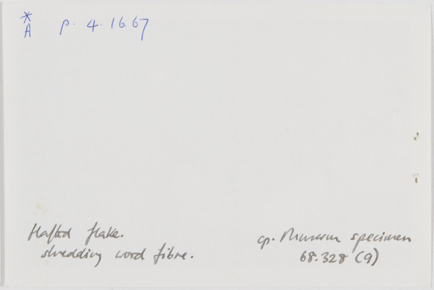 *
A p. 4.1667
Hafted flake.
shredding wood fibre.
cp. Museum specimen
68.328 (9)